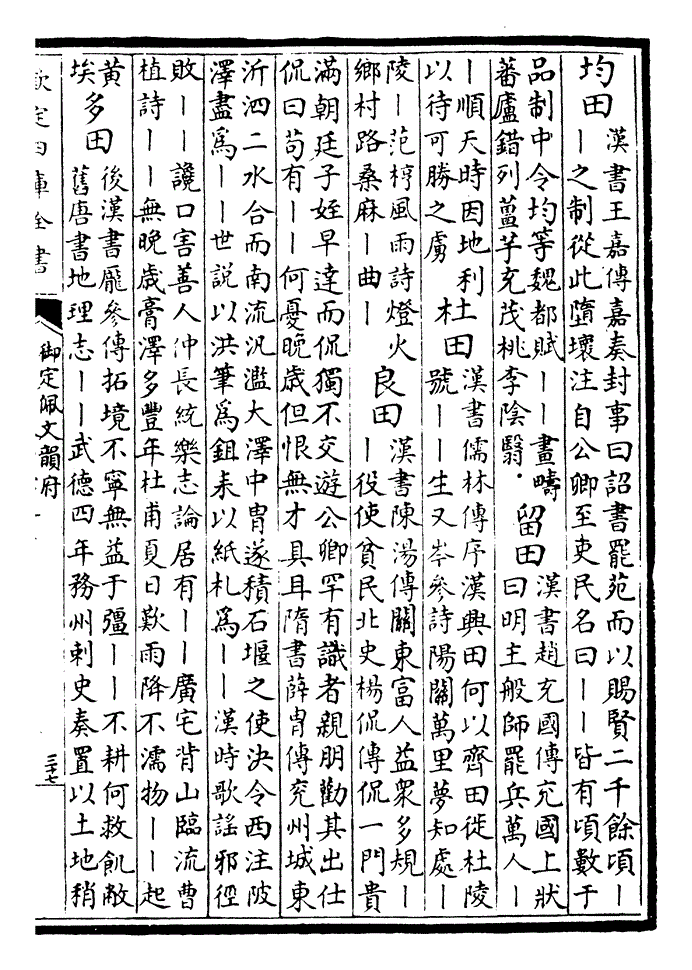 均田
漢書王嘉傳嘉奏封事曰詔書罷苑而以賜賢二千餘頃｜
｜之制從此墮壞注自公卿至吏民名曰｜｜皆有頃數于
品制中令均等魏都賦｜｜畫疇
蕃廬錯列薑芋充茂桃李陰翳
留田
漢書趙充國傳充國上狀
曰明主般師罷兵萬人｜
｜順天時因地利
以待可勝之虜
杜田
漢書儒林傳序漢興田何以齊田徙杜陵
號｜｜生又岑參詩陽關萬里夢知處｜
陵｜范梈風雨詩燈火
鄉村路桑麻｜曲｜
良田
漢書陳湯傳關東富人益衆多規｜
｜役使貧民北史楊侃傳侃一門貴
滿朝廷子姪早達而侃獨不交遊公卿罕有識者親朋勸其出仕
侃曰苟有｜｜何憂晚歲但恨無才具耳隋書薛胄傳兖州城東
沂泗二水合而南流汎濫大澤中胄遂積石堰之使決令西注陂
澤盡爲｜｜世説以洪筆爲鉏耒以紙札爲｜｜漢時歌謡邪徑
敗｜｜讒口害善人仲長統樂志論居有｜｜廣宅背山臨流曹
植詩｜｜無晚歲膏澤多豐年杜甫夏日歎雨降不濡物｜｜起
黄
埃
多田
後漢書龐參傳拓境不寧無益于彊｜｜不耕何救飢敝
舊唐書地理志｜｜武德四年務州刺史奏置以土地稍
欽定四庫全書
御定佩文韻府
三十七